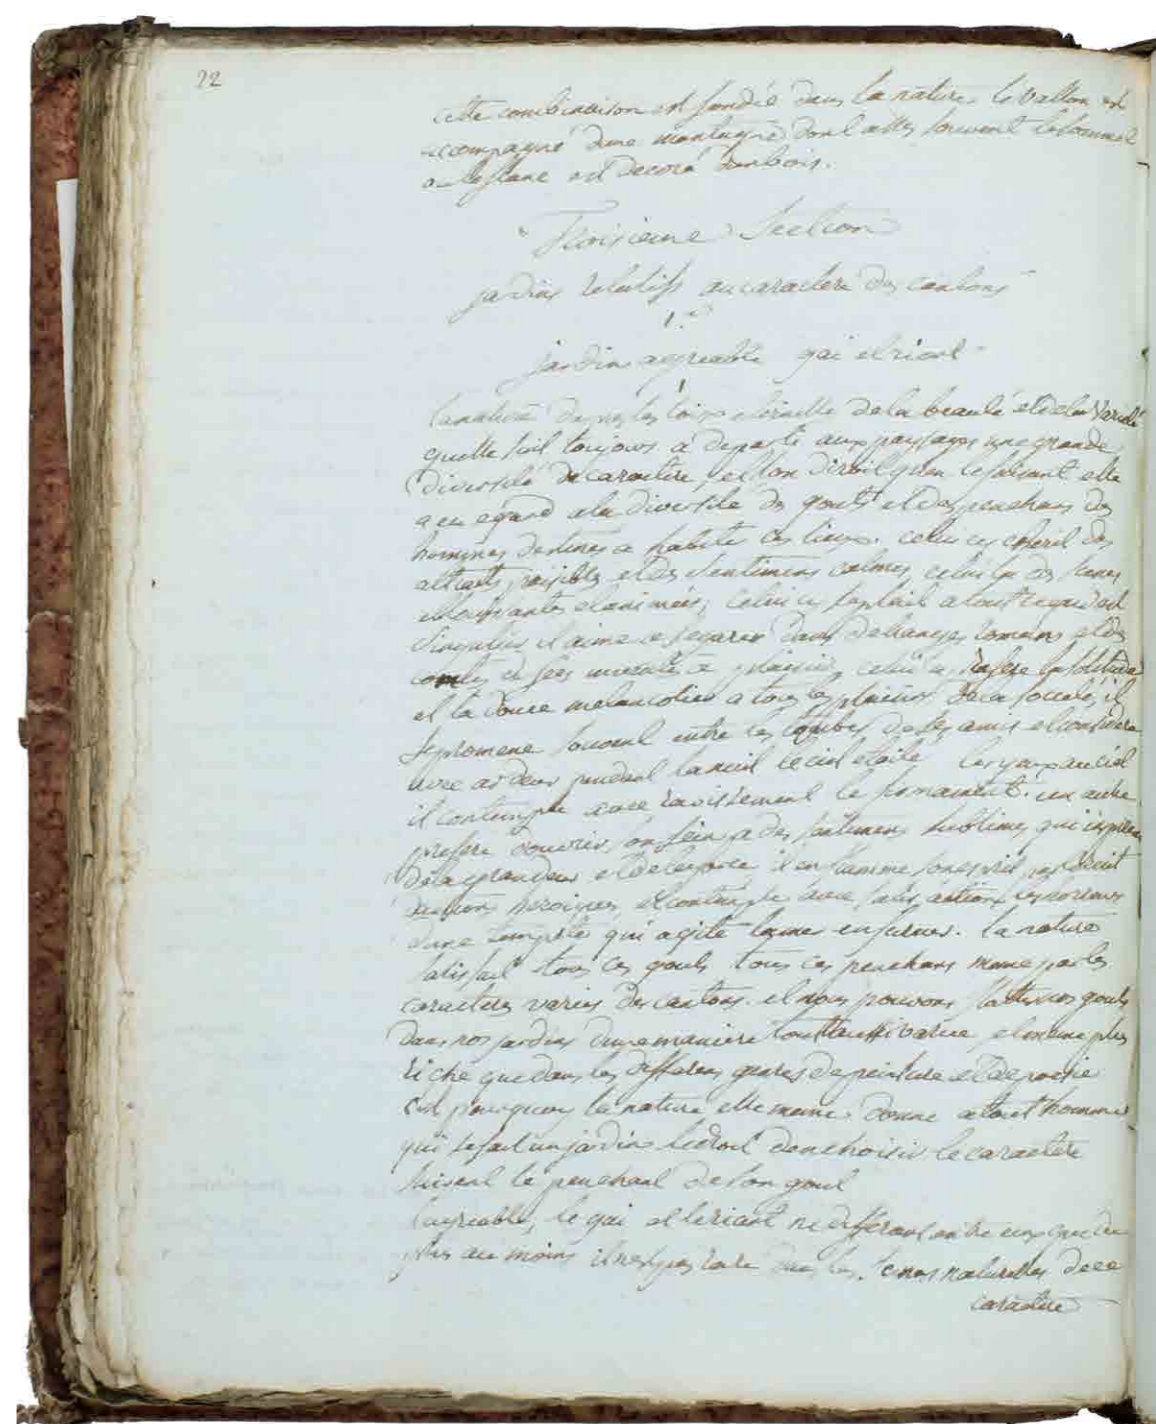 22
cette combinaison est fondée dans la nature le vallon est
accompagné dune montagne dont assés souvent le sommet
ou le flanc est decoré dun bois.
Troisieme Section
jardins relatifs au caractere des cantons
1.er
jardin agreable gai et riant
1
la nature dapres les loix eternelle de la beauté et de la varieté
quelle suit toujours à departi aux paysages une grande
diversité de caractere, et lon diroit quen ce faisant elle
a eu egard a la diversité de gouts et des penchans des
hommes destinés a habiter ces lieux. celui cy cherit des
attraits paisibles et des sentimens calmes, celui la des scenes
eblouissantes et animées; celui cy se plait a tout regard
singulier il aime a segarer dans detranges romans et des
contes de fées inventés à plaisir, celui cy prefere la solitude
et la douce melancolie a tous les plaisirs de la societé, il
se promene souvent entre les tombes de ses amis et considere
avec ardeur pendant la nuit le ciel etoilé les yeux au ciel
il contemple avec ravissement le firmament. un autre
prefere douvrir son sein a des sentimens sublimes qui inspirent
de la grandeur et de la force il enflamme son esprit
actions heroiques, et contemple avec satisfaction les horreurs
dune tempete qui agite la mer en fureur. la nature
satisfait tous ces gouts tous ces penchans meme par les
caracteres variés des cantons. et nous pouvons flatter ces gouts
dans nos jardins dune maniere tout aussi variée et meme plus
riche que dans les differens genres de peinture et de poesie
cest pourquoy la nature elle meme donne a tout homme
qui se fait un jardin le droit den choisir le caractere
suivant le penchant de son gout
lagreable, le gai et le riant ne different entre eux que du
plus au moins il nest pas rare dans les scenes naturelles de ce
caractere